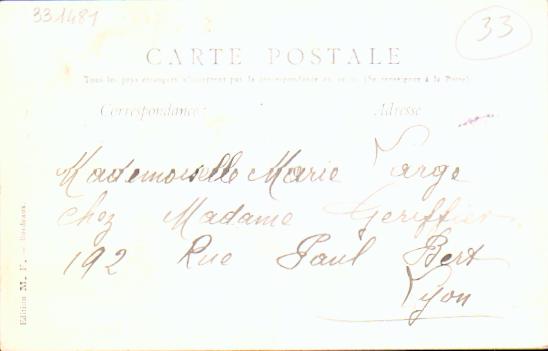 331481
33
CARTE POSTALE
Tous les pays étrangers n'acceptent pas la correspondance au recto. (Se renseigner à la Poste)
Correspondance :
Adresse
Mademoiselle Marie Large
chez Madame
192 Rue Paul Bert
Lyon
Edition M. F. — Bordeaux.